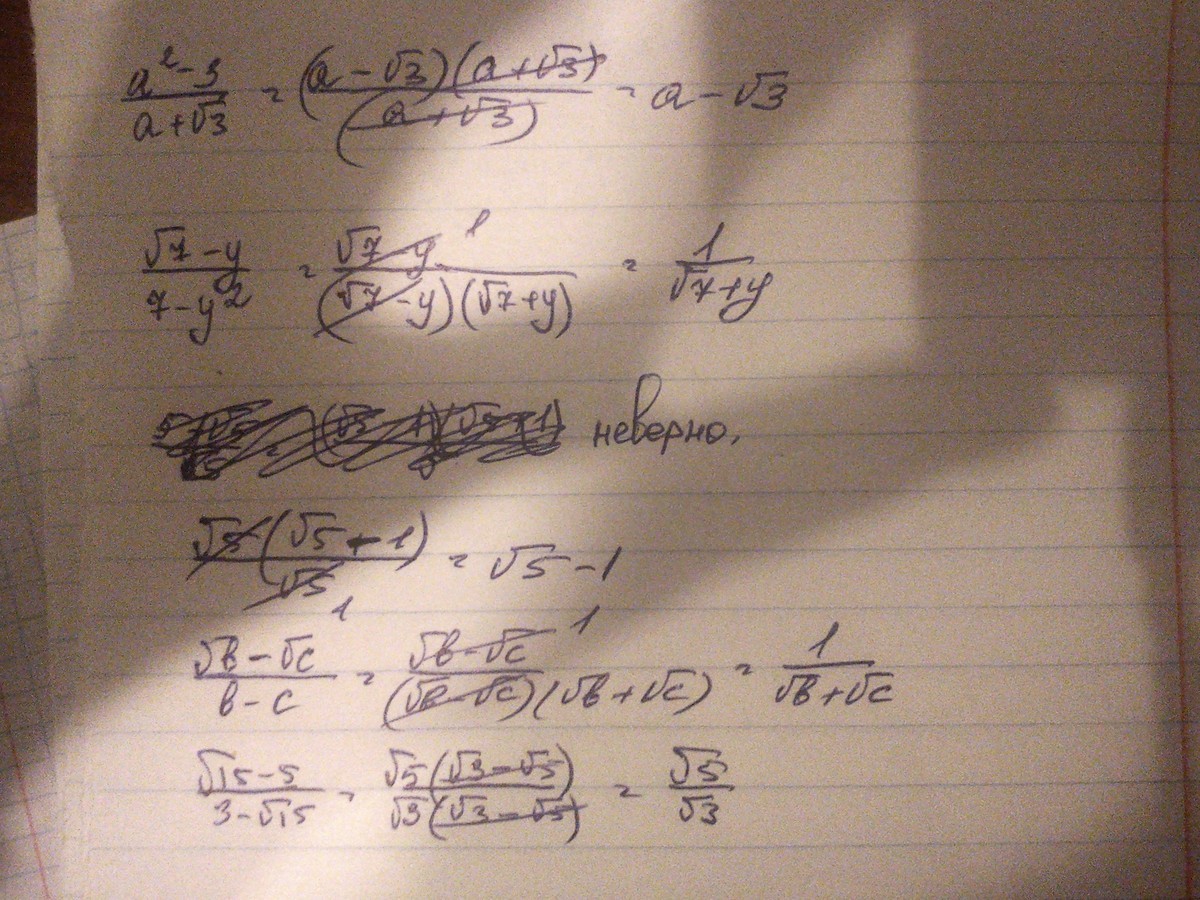 a² - 3 / a + √3 = (a - √3)(a + √3) / (a + √3) = a - √3
√7 - y / 7 - y² = √7 - y 1 / (√7 - y)(√7 + y) = 1 / √7 + y
неверно.
√5 (√5 - 1) / √5 1 = √5 - 1
√b - √c / b - c = √b - √c 1 / (√b - √c)(√b + √c) = 1 / √b + √c
√15 - 5 / 3 - √15 = √5 (√3 - √5) / √3 (√3 - √5) = √5 / √3